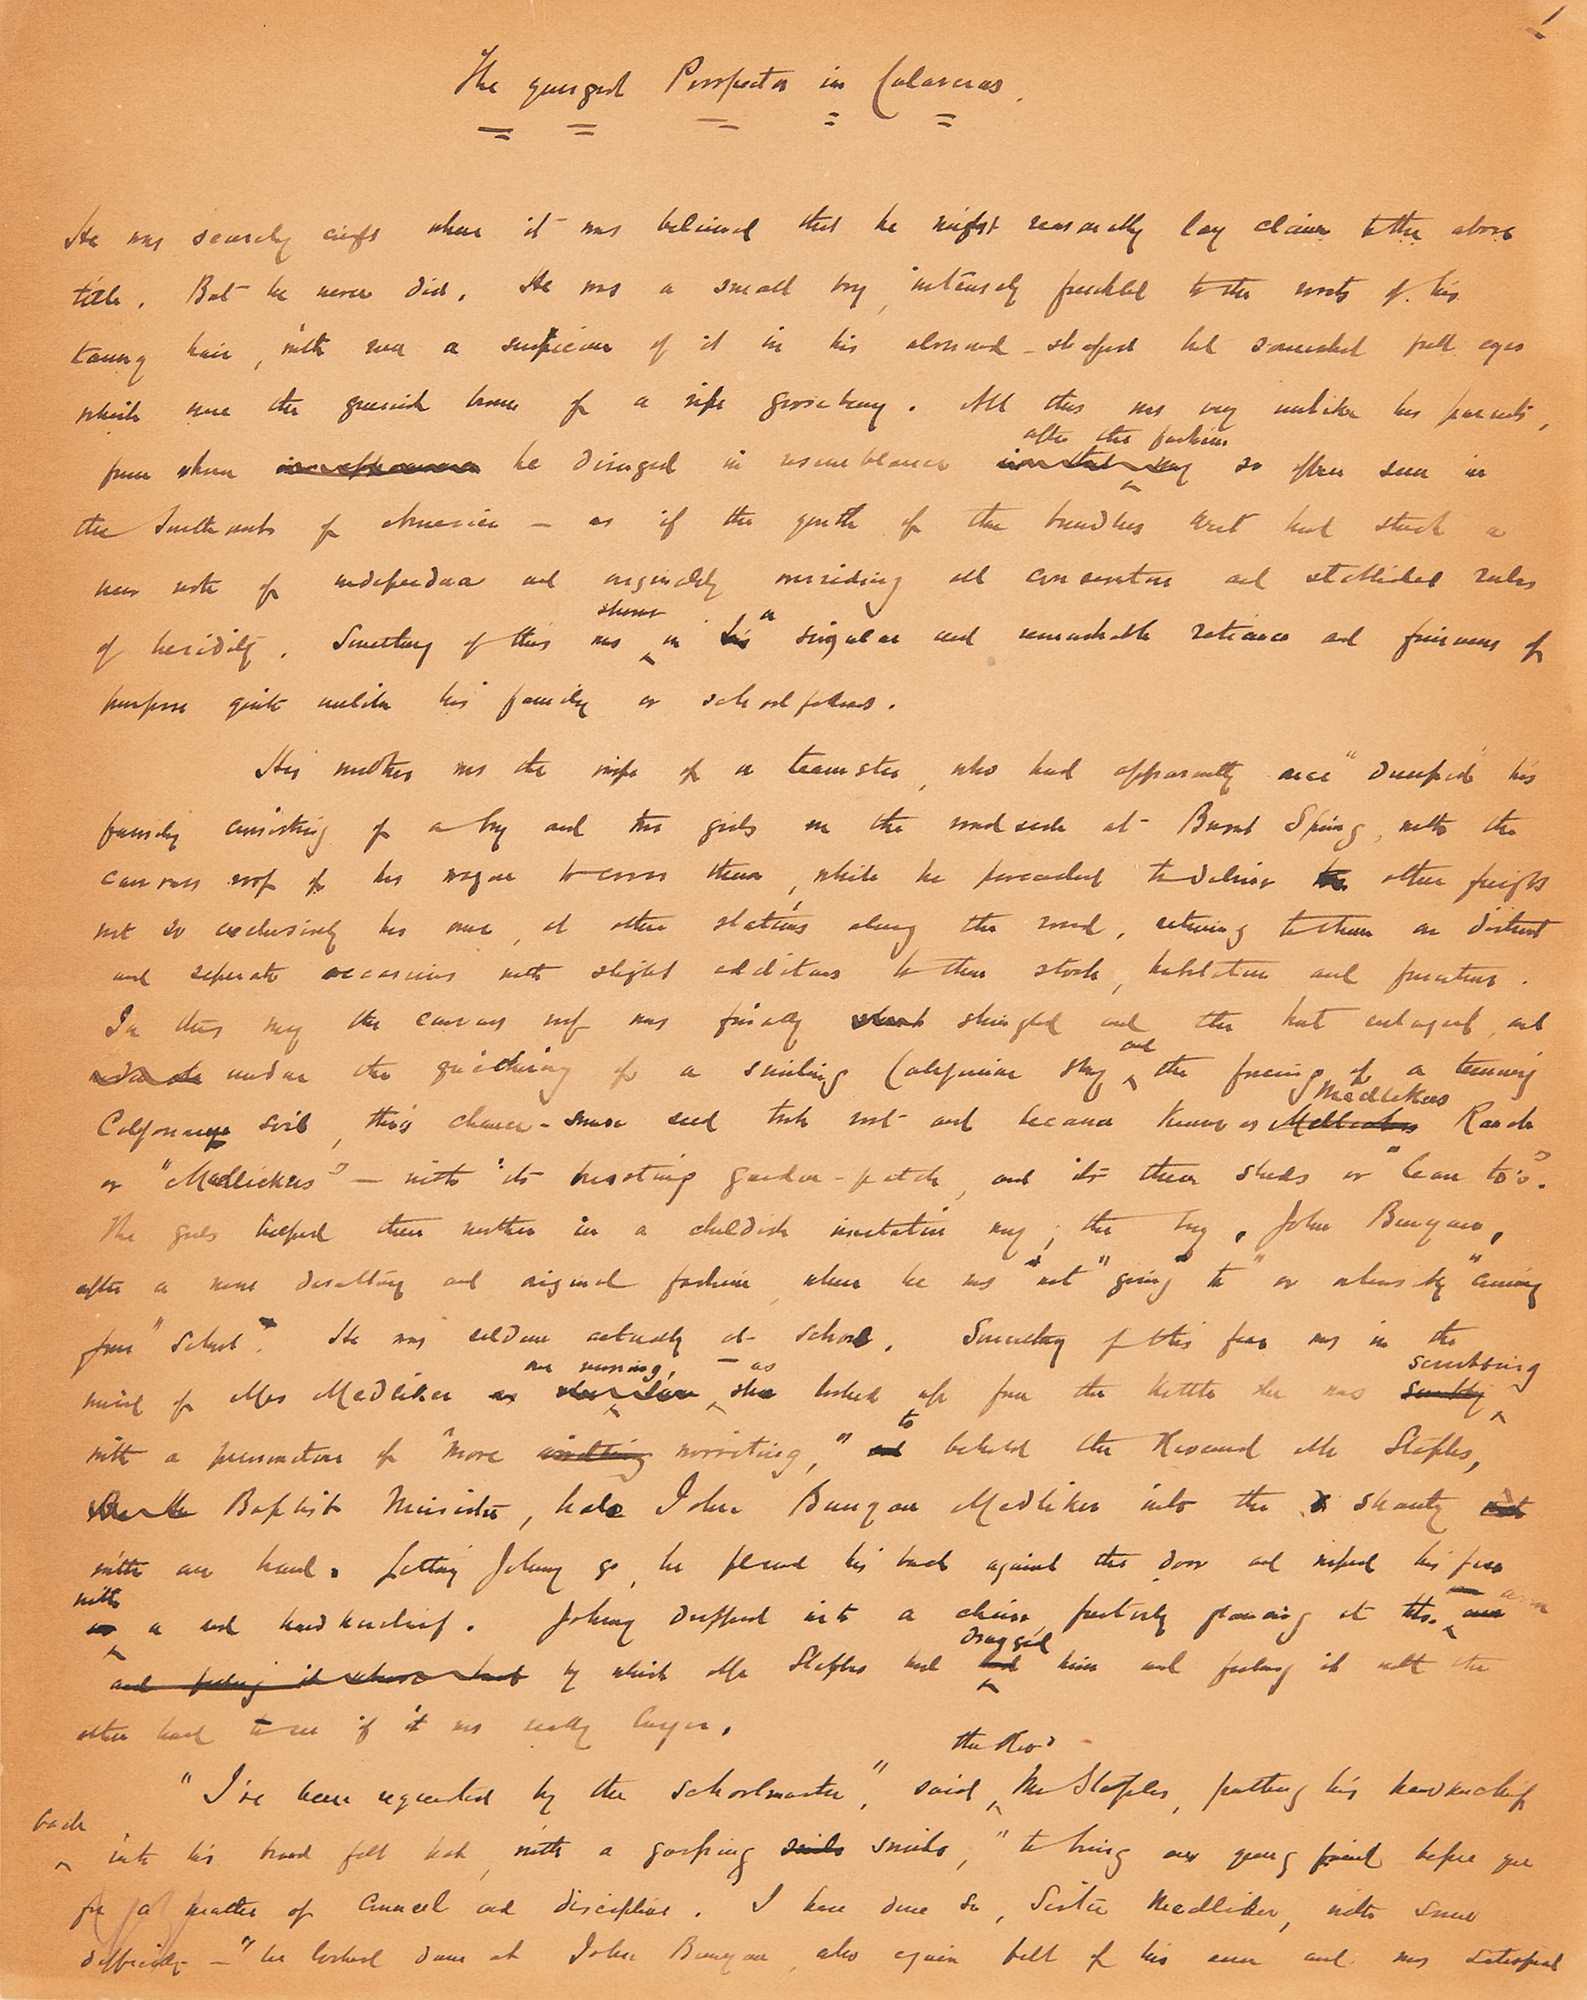 1
The youngest Prospector in Calaveras.
He was scarcely eight when it was believed that he might reasonably lay claim to the above
title. But he never did. He was a small boy, intensely freckled to the roots of his
tawny hair, with even a suspicion of it in his almond-shaped but somewhat full eyes
which were the greenish brown of a ripe gooseberry. All this was very unlike his parents,
after the fashion
from whom he diverged in resemblance so often seen in
the Southwest of America — as if the youth of the boundless West had struck a
new note of independence and originality overriding all conservative and established rules
shown a
of heridity. Something of this was in his singular and remarkable reticence and firmness of
purpose quite unlike his family or schoolfellows.
His mother was the wife of a teamster, who had apparently once "dumped" his
family consisting of a boy and two girls on the roadside at Burnt Spring, with the
canvas roof of his wagon to cover them, while he proceeded to deliver other freight
not so exclusively his own, at other stations along the road, returning to them on distant
and separate occasions with slight additions to their stock, habitation and furniture.
In this way the canvas roof was finally shingled and the hut enlarged, and
and
under the quickening of a smiling Californian sky the forcing of a teeming
Medlikers
Californian soil, this chance-sown seed took root and became known as Ranch
or "Medlickers" — with its bursting garden-patch, and its three sheds or "lean to's".
The girls helped their mother in a childish imitative way; the boy, John Bunyan,
after a more desultory and original fashion, when he was not "going to" or ostensibly "coming
from" school". He was seldom actually at school. Something of this fear was in the
one morning, — as scrubbing
mind of Mrs Medliker she looked up from the kettle she was
to
with a premonition of "more worriting," behold the Reverend Mr Staples,
Baptist Minister, hale John Bunyan Medliker into the shanty
with one hand. Letting Johnny go, he placed his back against the door and wiped his face
with
a red handkerchief. Johnny dropped into a chair, furtively glancing at the arm
dragged
by which Mr Staples had him and feeling it with the
other hand to see if it was really longer.
the Rev'd
"I've been requested by the schoolmaster," said Mr Staples, putting his handkerchief
back
into his broad felt hat, with a gasping smile, "to bring our young friend before you
for a matter of counsel and discipline. I have done so, Sister Medliker, with some
difficulty —" he looked down at John Bunyan, who again felt of his arm and was satisfied